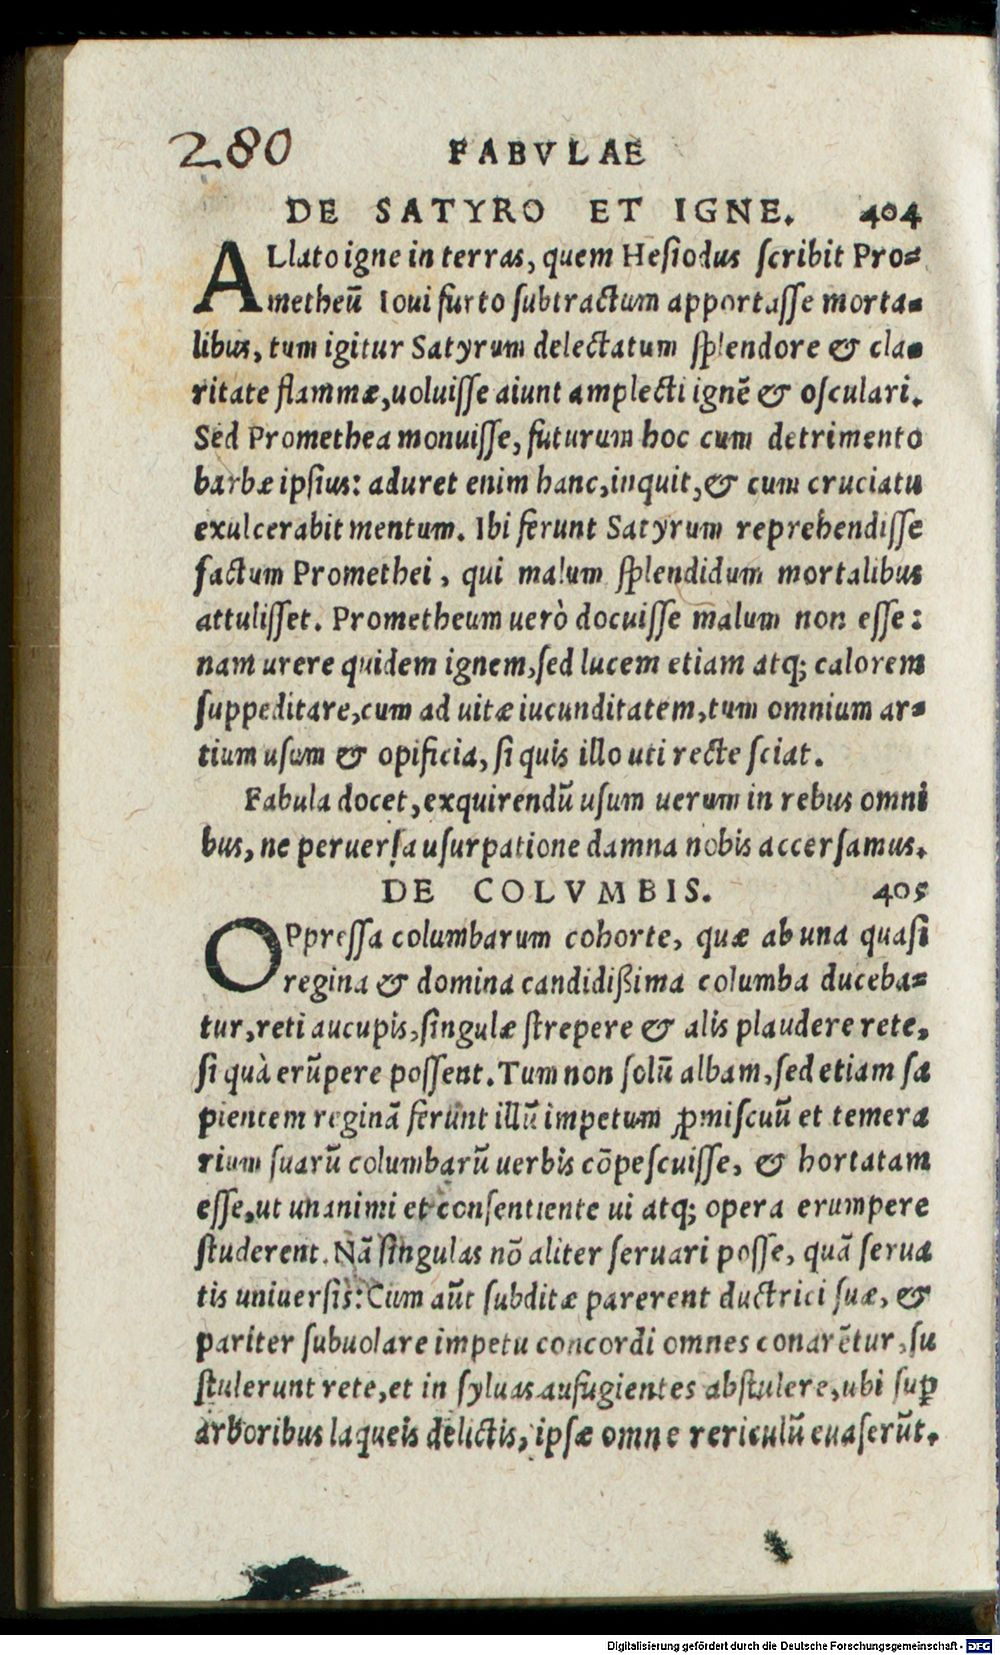 280 FABVLAE
DE SATYRO ET IGNE. 404
ALlato igne in terras, quem Hesiodus scribit Pro=
metheū Ioui furto subtractum apportasse morta=
libus, tum igitur Satyrum delectatum splendore & cla=
ritate flammæ, uoluisse aiunt amplecti ignē & osculari.
Sed Promethea monuisse, futurum hoc cum detrimento
barbæ ipsius: aduret enim hanc, inquit, & cum cruciatu
exulcerabit mentum. Ibi ferunt Satyrum reprehendisse
factum Promethei, qui malum splendidum mortalibus
attulisset. Prometheum uerò docuisse malum non esse:
nam urere quidem ignem, sed lucem etiam atq; calorem
suppeditare, cum ad uitæ iucunditatem, tum omnium ar=
tium usum & opificia, si quis illo uti recte sciat.
Fabula docet, exquirendū usum uerum in rebus omni
bus, ne peruersa usurpatione damna nobis accersamus.
DE COLVMBIS. 405
OPpressa columbarum cohorte, quæ ab una quasi
regina & domina candidißima columba duceba=
tur, reti aucupis, singulæ strepere & alis plaudere rete,
si quà erūpere possent. Tum non solū albam, sed etiam sa
pientem reginā ferunt illū impetum ꝓmiscuū et temera
rium suarū columbarū uerbis cōpescuisse, & hortatam
esse, ut unanimi et consentiente ui atq; opera erumpere
studerent. Nā singulas nō aliter seruari posse, quā serua
tis uniuersis: Cum aūt subditæ parerent ductrici suæ, &
pariter subuolare impetu concordi omnes conarētur, su
stulerunt rete, et in syluas aufugientes abstulere, ubi suꝑ
arboribus laqueis delictis, ipsæ omne rericulū euaserūt.
Digitalisierung gefördert durch die Deutsche Forschungsgemeinschaft - DFG